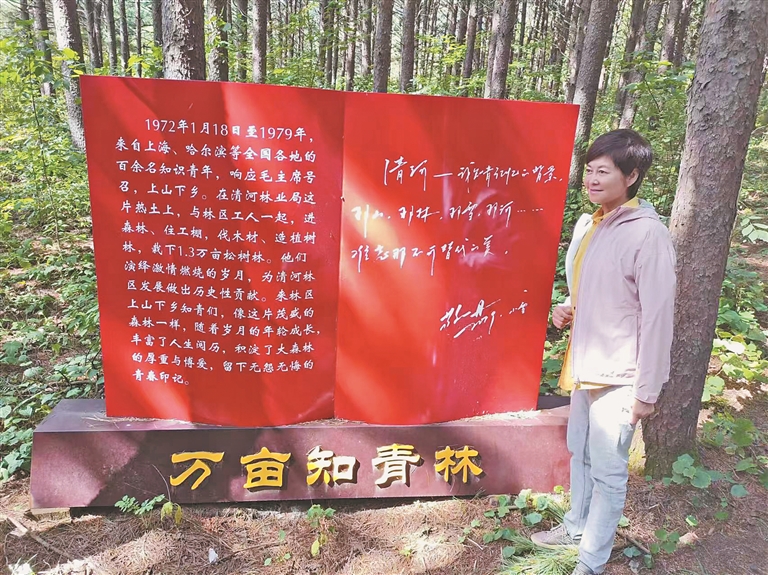 1972年1月18日至1979年，
来自上海、哈尔滨等全国各地的
百余名知识青年，响应毛主席号
召，上山下乡。在清河林业局这
片热土上，与林区工人一起，进
森林、住工棚，伐木材、造植树
林，栽下1.3万亩松树林。他们
演绎激情燃烧的岁月，为清河林
区发展做出历史性贡献。来林区
上山下乡知青们，像这片茂盛的
森林一样，随着岁月的年轮成长，
丰富了人生阅历，积淀了大森林
的厚重与博爱，留下无怨无悔的
青春印记。
清河
那山、那林、那雪、那河……
万亩知青林